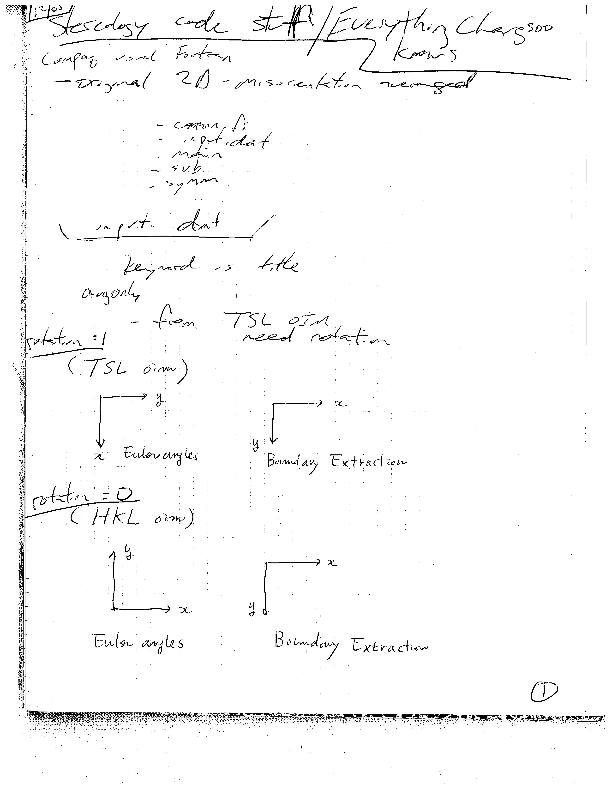 Stereology code stuff/Everything Changsoo
Knows
Compaq visual Fortran
- Original 2D - misorientation averaged
- common.fi
- input.dat
- main
- sub
- symm
input.dat
keyword is title
- from TSL OIM
need rotation
rotation = 1
(TSL oim)
y x
x Euler angles y Boundary Extraction
rotation = 0
(HKL oim)
y x
x y
Euler angles Boundary Extraction
1